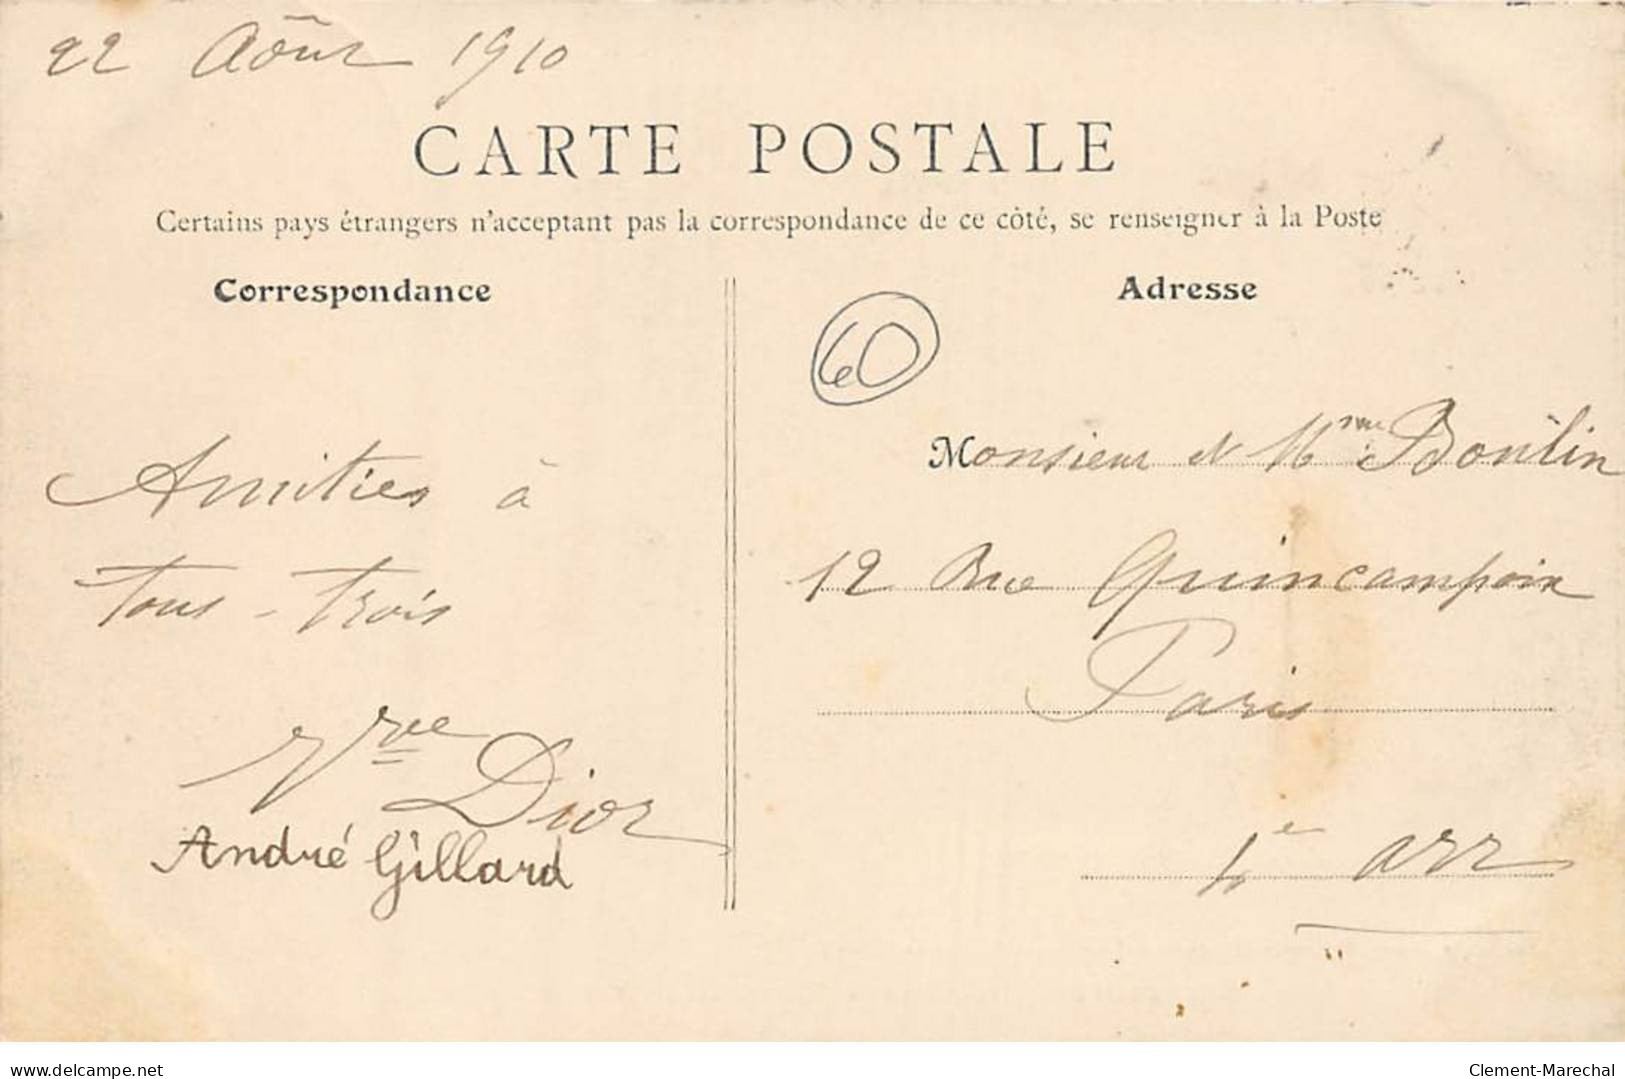 22 Août 1910
CARTE POSTALE
Certains pays étrangers n'acceptant pas la correspondance de ce côté, se renseigner à la Poste
Correspondance
Amitiés à
tous-trois
Vve Dior
André Gillard
Adresse
60
Monsieur et Mme Boulin
12 Rue Quincampoix
Paris
4e arr
delcampe.net
Clement-Marechal